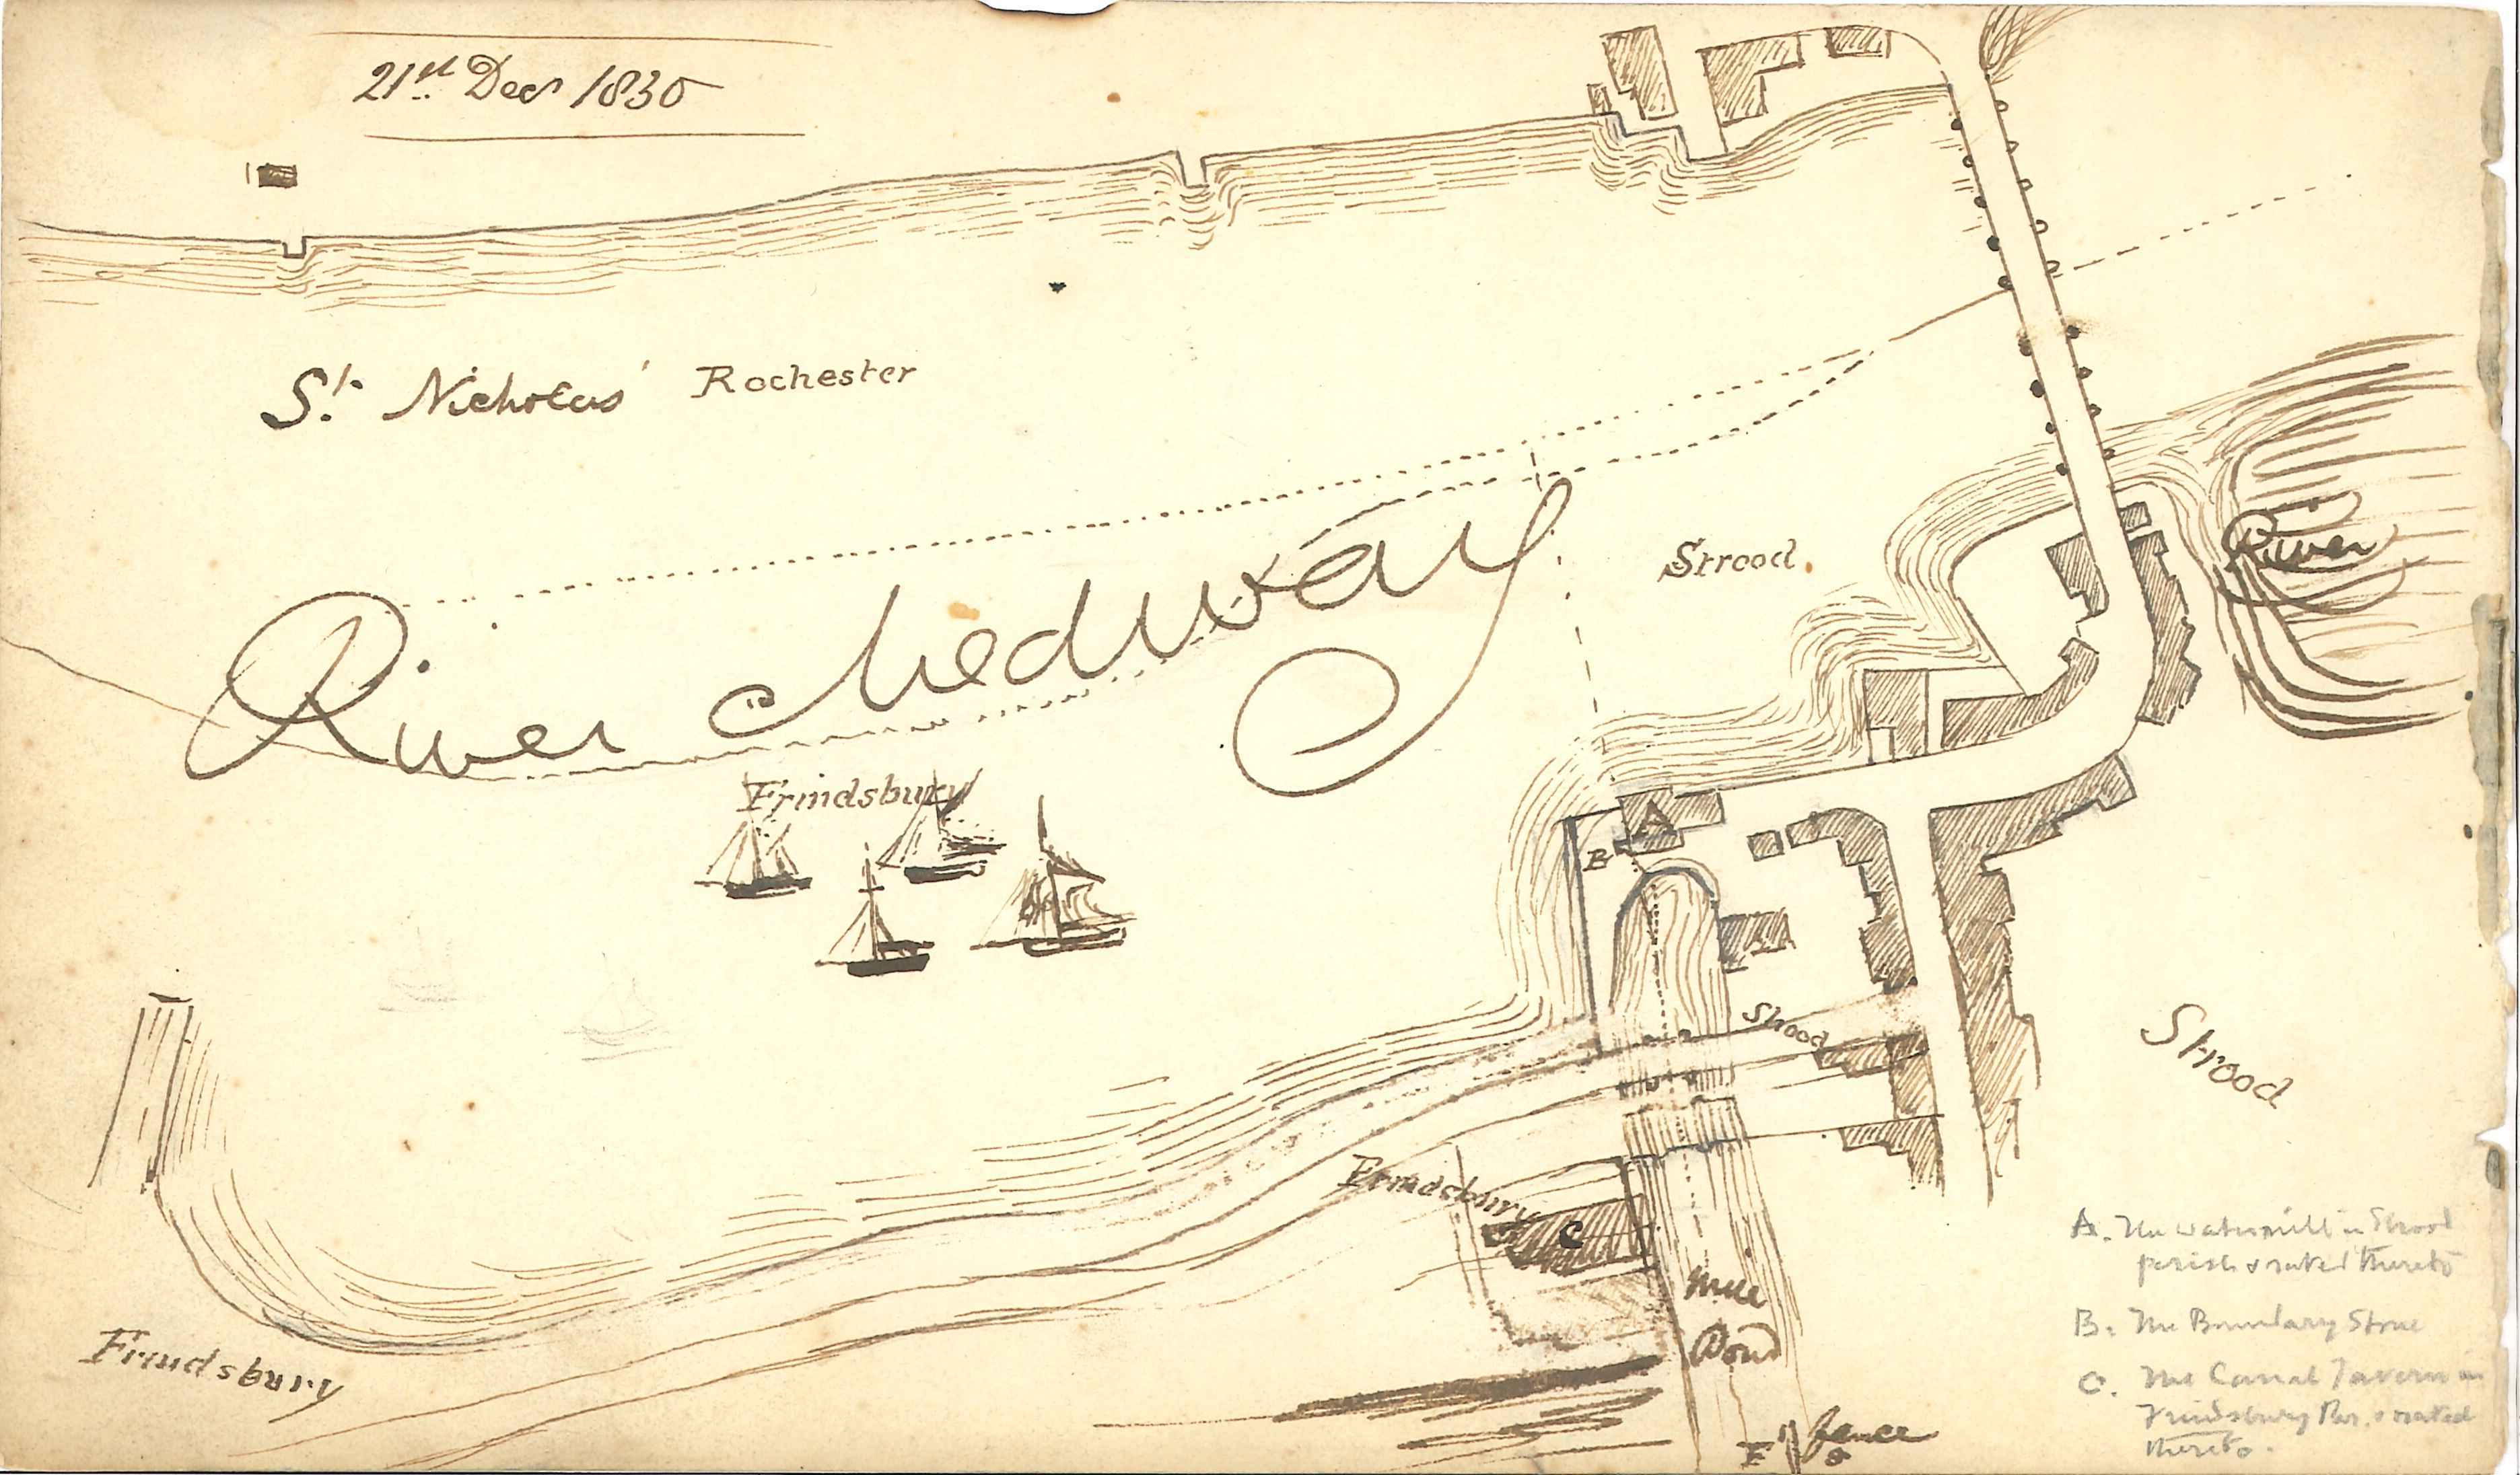 21st Decr 1830
St. Nicholas' Rochester
River Medway
Strood.
River
Frindsbury
A
B
Strood
Strood
Frindsbury
C
Mill
Pond
Frindsbury
fence
A. The watermill in Strood
parish & rated thereto
B. The Boundary Stone
C. The Canal Tavern in
Frindsbury Par. & rated
thereto.